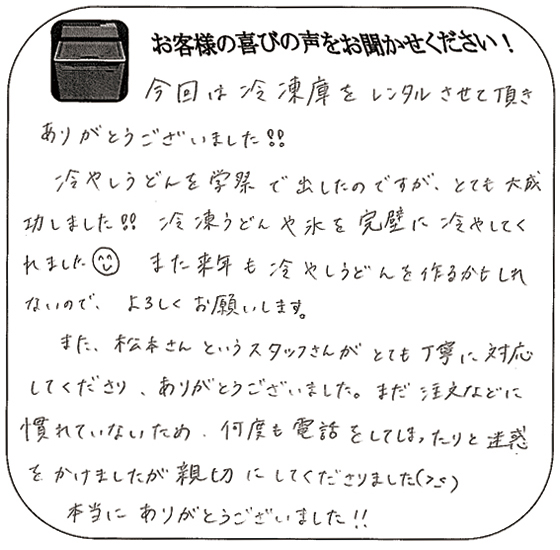 お客様の喜びの声をお聞かせください！
今回は冷凍庫をレンタルさせて頂き
ありがとうございました!!
冷やしうどんを学祭で出したのですが、とても大成
功しました!! 冷凍うどんや氷を完璧に冷やしてく
れました また来年も冷やしうどんを作るかもしれ
ないので、よろしくお願いします。
また、松本さんというスタッフさんがとても丁寧に対応
してくださり、ありがとうございました。まだ注文などに
慣れていないため、何度も電話をしてしまったりと迷惑
をかけましたが親切にしてくださりました(>_<)
本当にありがとうございました!!